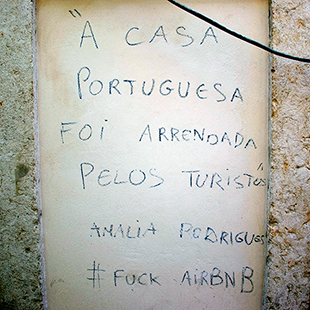 "A CASA
PORTUGUESA
FOI ARRENDADA
PELOS TURISTAS"
AMALIA RODRIGUES
# FUCK AIRBNB